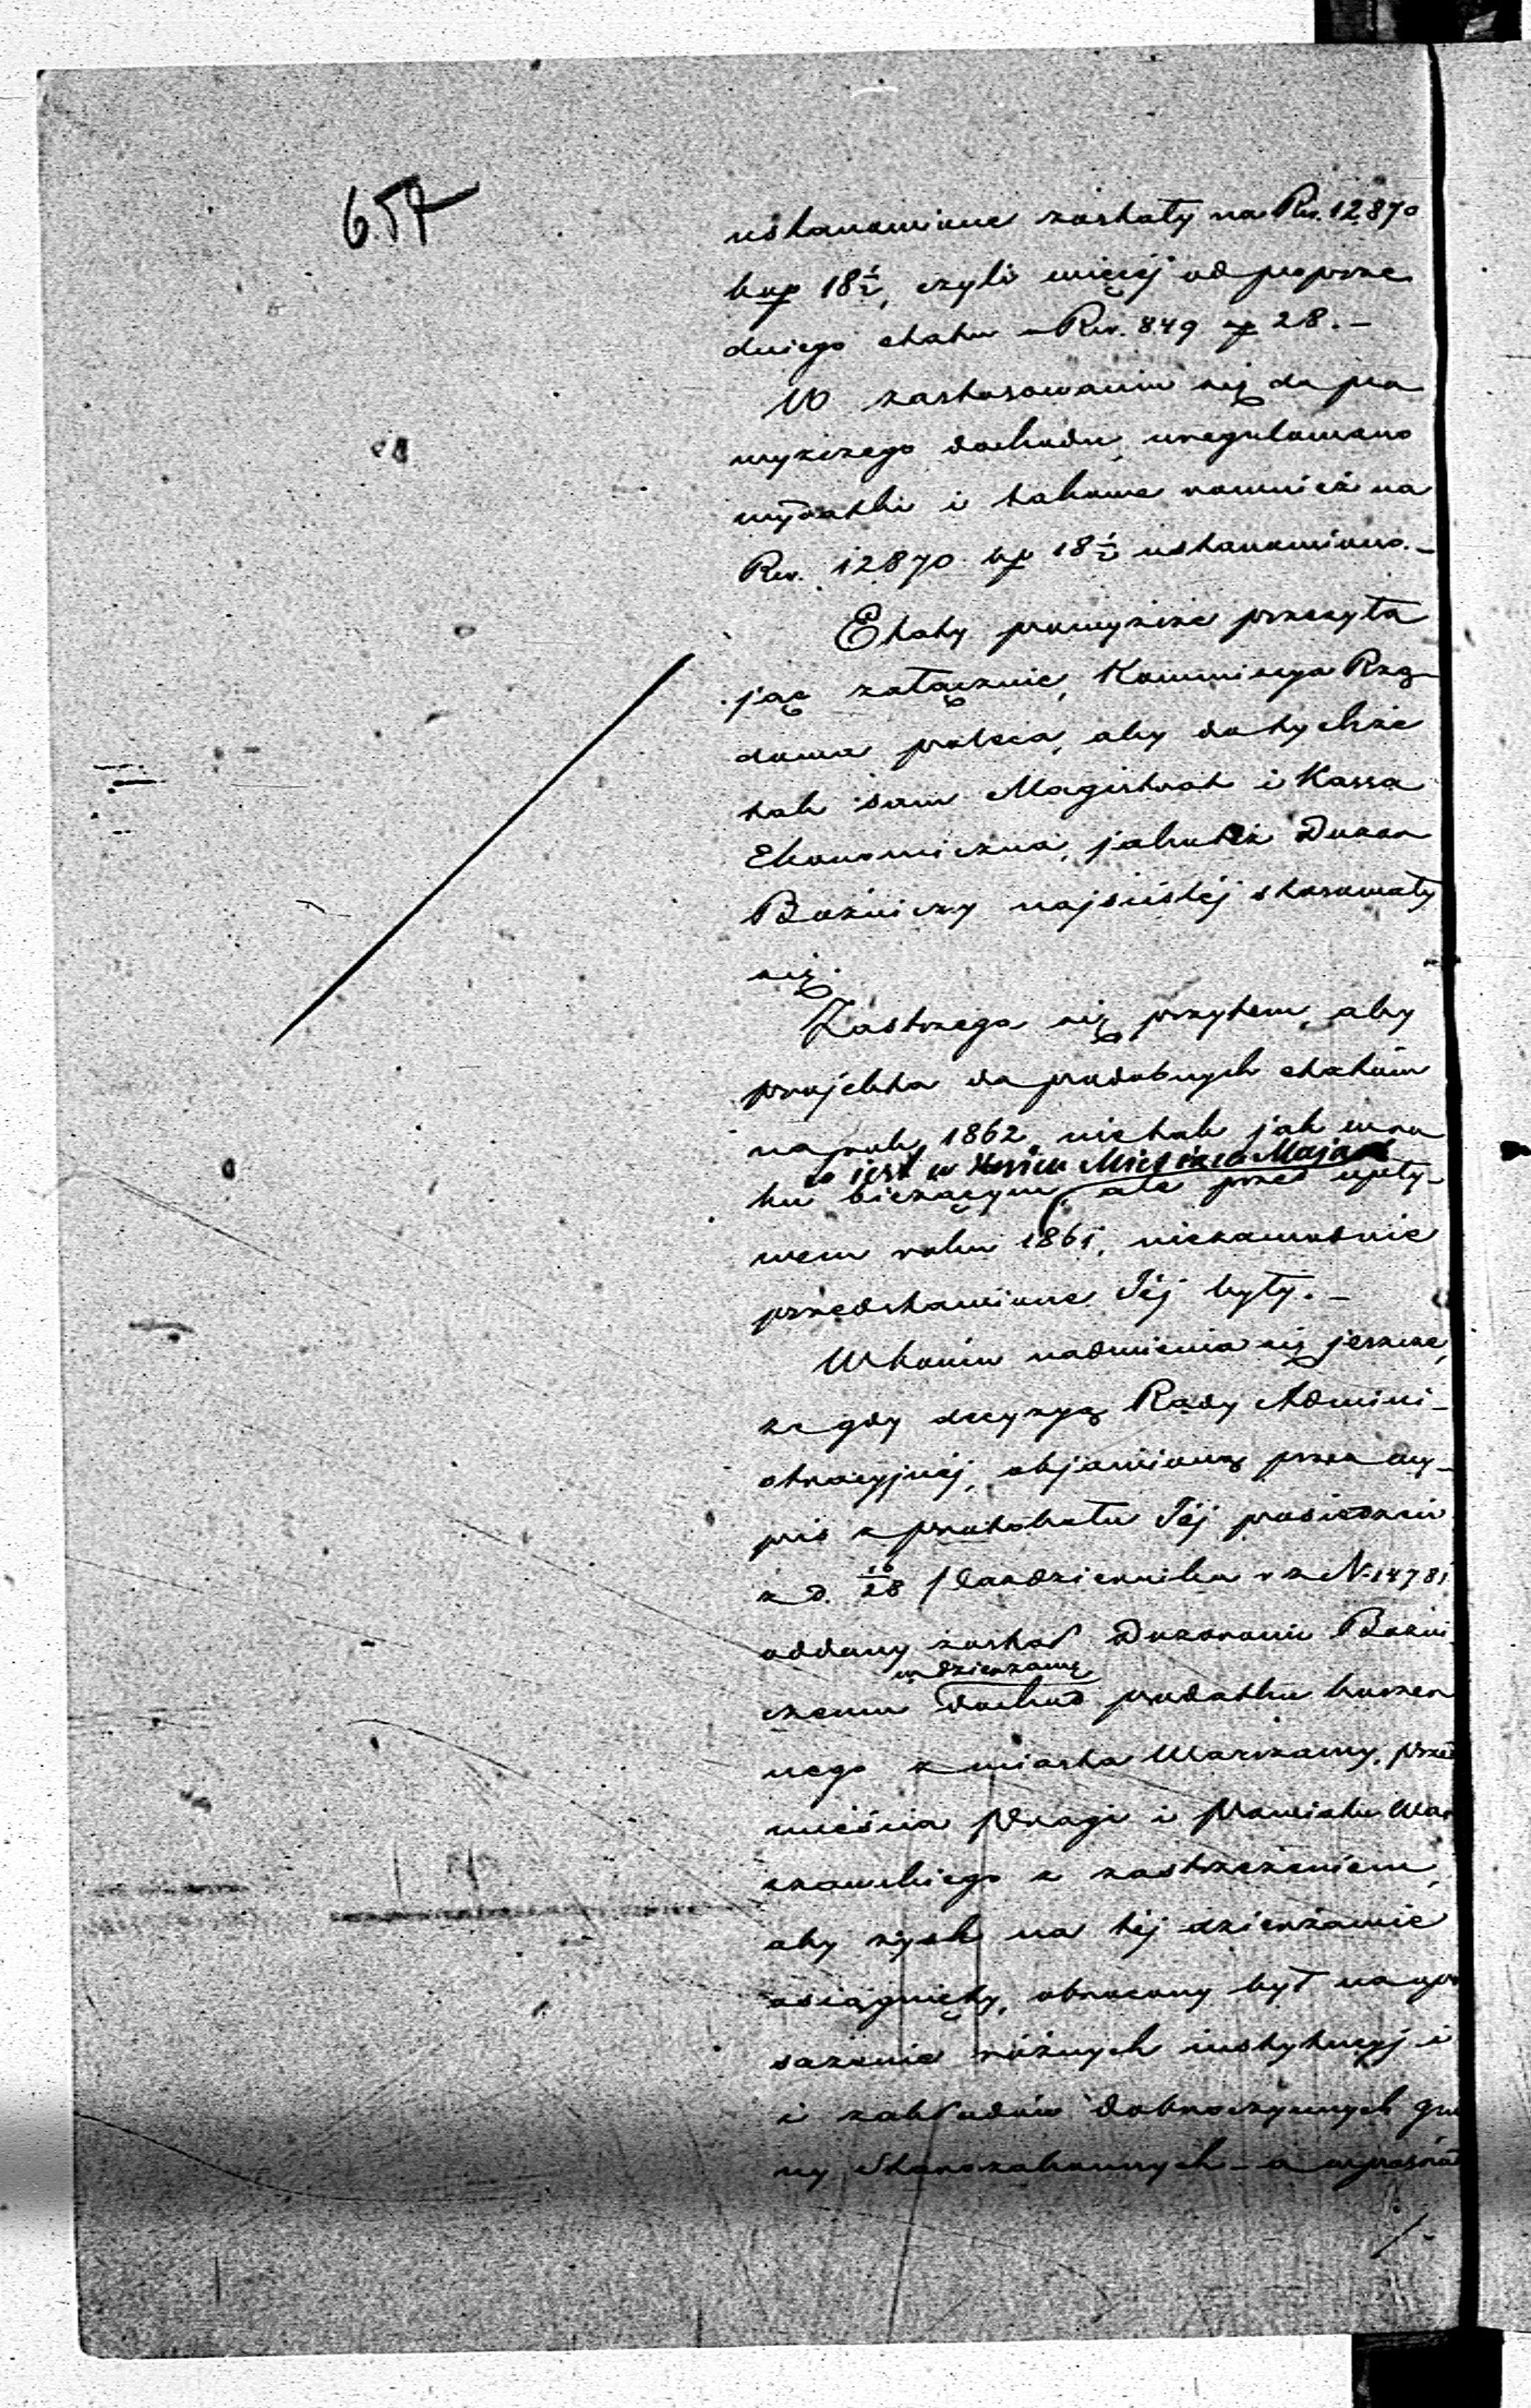 657
ustanowione zostały na Rsr. 12,870
kop 18½, czyli więcéj od poprze
dniego etatu o Rsr. 849 kp 28.–
W zastosowaniu się do po
wyższego dochodu, uregulowano
wydatki i takowe rownież na
Rsr. 12870 kp 18½ ustanowiono.–
Etaty powyższe przesyła
jąc załącznie, Kommissya Rzą
dowa poleca, aby do tychże
tak sam Magistrat i Kassa
Ekonomiczna, jakoteż Dozor
Bożniczy najściśléj stosowały
się.
Zastrzega się przytem, aby
projekta do podobnych etatów
na rok 1862, nie tak jak w ro
to jest w Miesiącu Maju
ku bieżącym, ale przed upły-
wem roku 1861, niezawodnie
przedstawione Jéj były.–
W końcu nadmienia się jeszcze,
że gdy decyzyą Rady Admini-
stracyjnéj, objawioną przez wy-
pis z protokułu Jéj posiedzeń
z d. 16/28 Pazdziernika r z N. 14781
oddany został Dozorowi Bożni
w dzierżawę
czemu dochod podatku koszer
nego z miasta Warszawy, przed
mieścia Pragi i Powiatu War
szawskiego z zastrzeżeniem,
aby zysk na téj dzierżawie
osiągnięty, obrocony był na upo
sażenie różnych instytucyj i
i zakładów dobroczynnych gmi
ny Starozakonnych – a